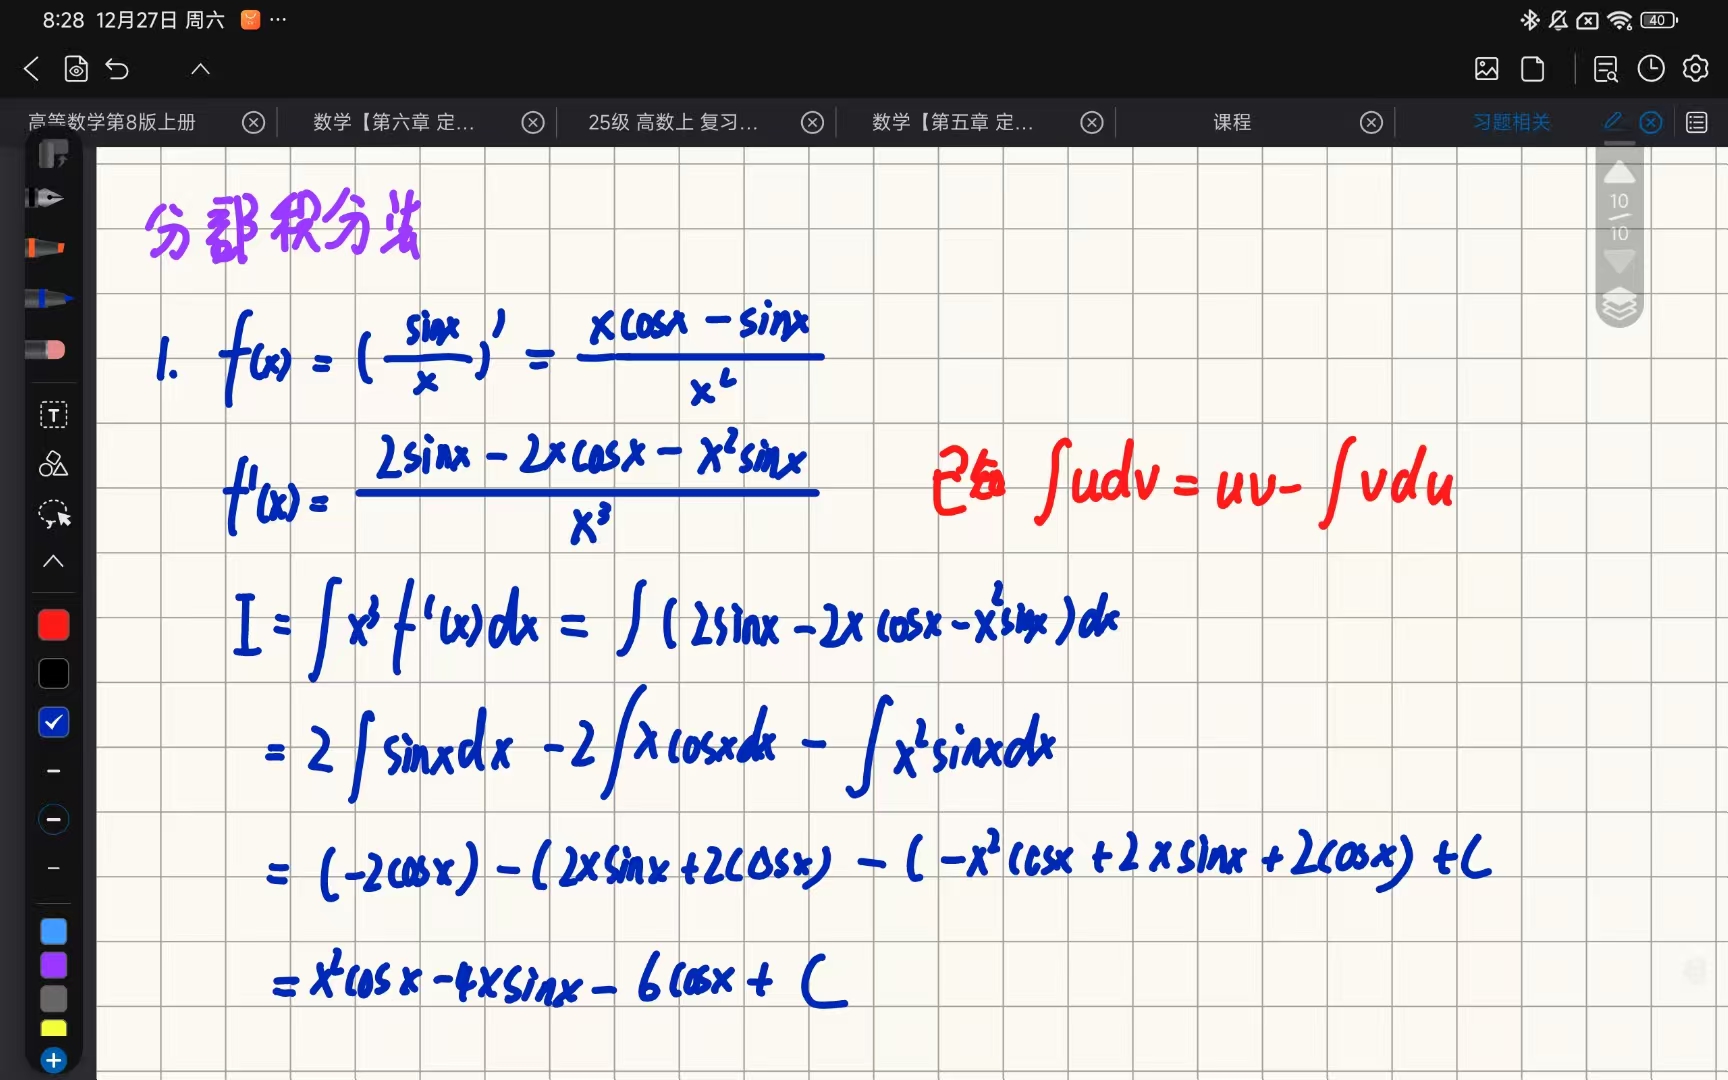 8:28 12月27日 周六 ...
40
高等数学第8版上册
数学【第六章 定...
25级 高数上 复习...
数学【第五章 定...
课程
习题相关
10
10
T
分部积分法
1. f(x) = (sinx/x)' = (xcosx - sinx)/x²
f'(x) = (2sinx - 2xcosx - x²sinx)/x³
已知 ∫udv = uv - ∫vdu
I = ∫x³f'(x)dx = ∫(2sinx - 2xcosx - x²sinx)dx
= 2∫sinxdx - 2∫xcosxdx - ∫x²sinxdx
= (-2cosx) - (2xsinx + 2cosx) - (-x²cosx + 2xsinx + 2cosx) + C
= x²cosx - 4xsinx - 6cosx + C